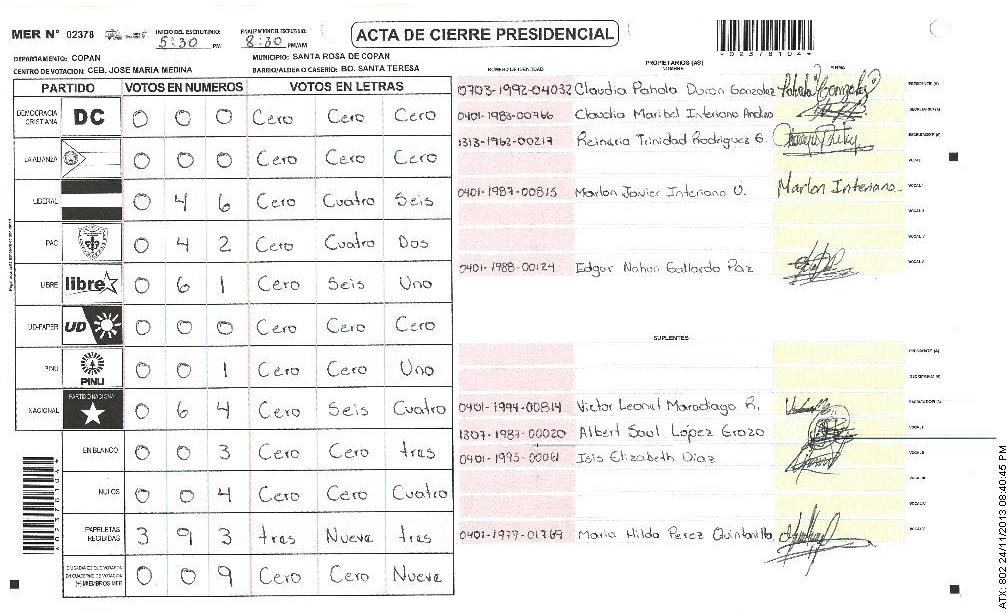 MER N° 02378
INICIO DEL ESCRUTINIO: 5:30 PM
FINALIZACION DEL ESCRUTINIO: 8:30 PM/AM
ACTA DE CIERRE PRESIDENCIAL
02378104
DEPARTAMENTO: COPAN
MUNICIPIO: SANTA ROSA DE COPAN
CENTRO DE VOTACION: CEB. JOSE MARIA MEDINA
BARRIO/ALDEA O CASERIO: BO. SANTA TERESA
PARTIDO VOTOS EN NUMEROS VOTOS EN LETRAS
DEMOCRACIA CRISTIANA DC 0 0 0 Cero Cero Cero
LA ALIANZA 0 0 0 Cero Cero Cero
LIBERAL 0 4 6 Cero Cuatro Seis
PAC 0 4 2 Cero Cuatro Dos
LIBRE libre 0 6 1 Cero Seis Uno
UD-FAPER UD 0 0 0 Cero Cero Cero
PINU PINU 0 0 1 Cero Cero Uno
NACIONAL PARTIDO NACIONAL 0 6 4 Cero Seis Cuatro
EN BLANCO 0 0 3 Cero Cero tres
NULOS 0 0 4 Cero Cero Cuatro
PAPELETAS RECIBIDAS 3 9 3 tres Nueve tres
CIUDADANOS QUE VOTARON EN CUADERNO DE VOTACION (+) MIEMBROS MER 0 0 9 Cero Cero Nueve
NUMERO DE IDENTIDAD PROPIETARIOS (AS) NOMBRE FIRMA
0703-1992-04032 Claudia Pahola Duron Gonzalez PRESIDENTE (A)
0401-1983-00766 Claudia Maribel Interiano Andino SECRETARIO (A)
1313-1962-00217 Reinaria Trinidad Rodriguez G. ESCRUTADOR (A)
VOCAL I
0401-1987-00815 Marlon Javier Interiano U. Marlon Interiano
VOCAL V
0401-1988-00124 Edgar Nahun Gallardo Paz
SUPLENTES
PRESIDENTE (A)
SECRETARIO (A)
0401-1994-00814 Victor Leonel Maradiaga R. ESCRUTADOR (A)
1307-1987-00020 Albert Saul López Erazo VOCAL I
0401-1995-00061 Isis Elizabeth Diaz VOCAL II
VOCAL III
VOCAL IV
0401-1977-01769 Maria Hilda Perez Quintanilla VOCAL V
ATX: 802 24/11/2013 08:40:45 PM